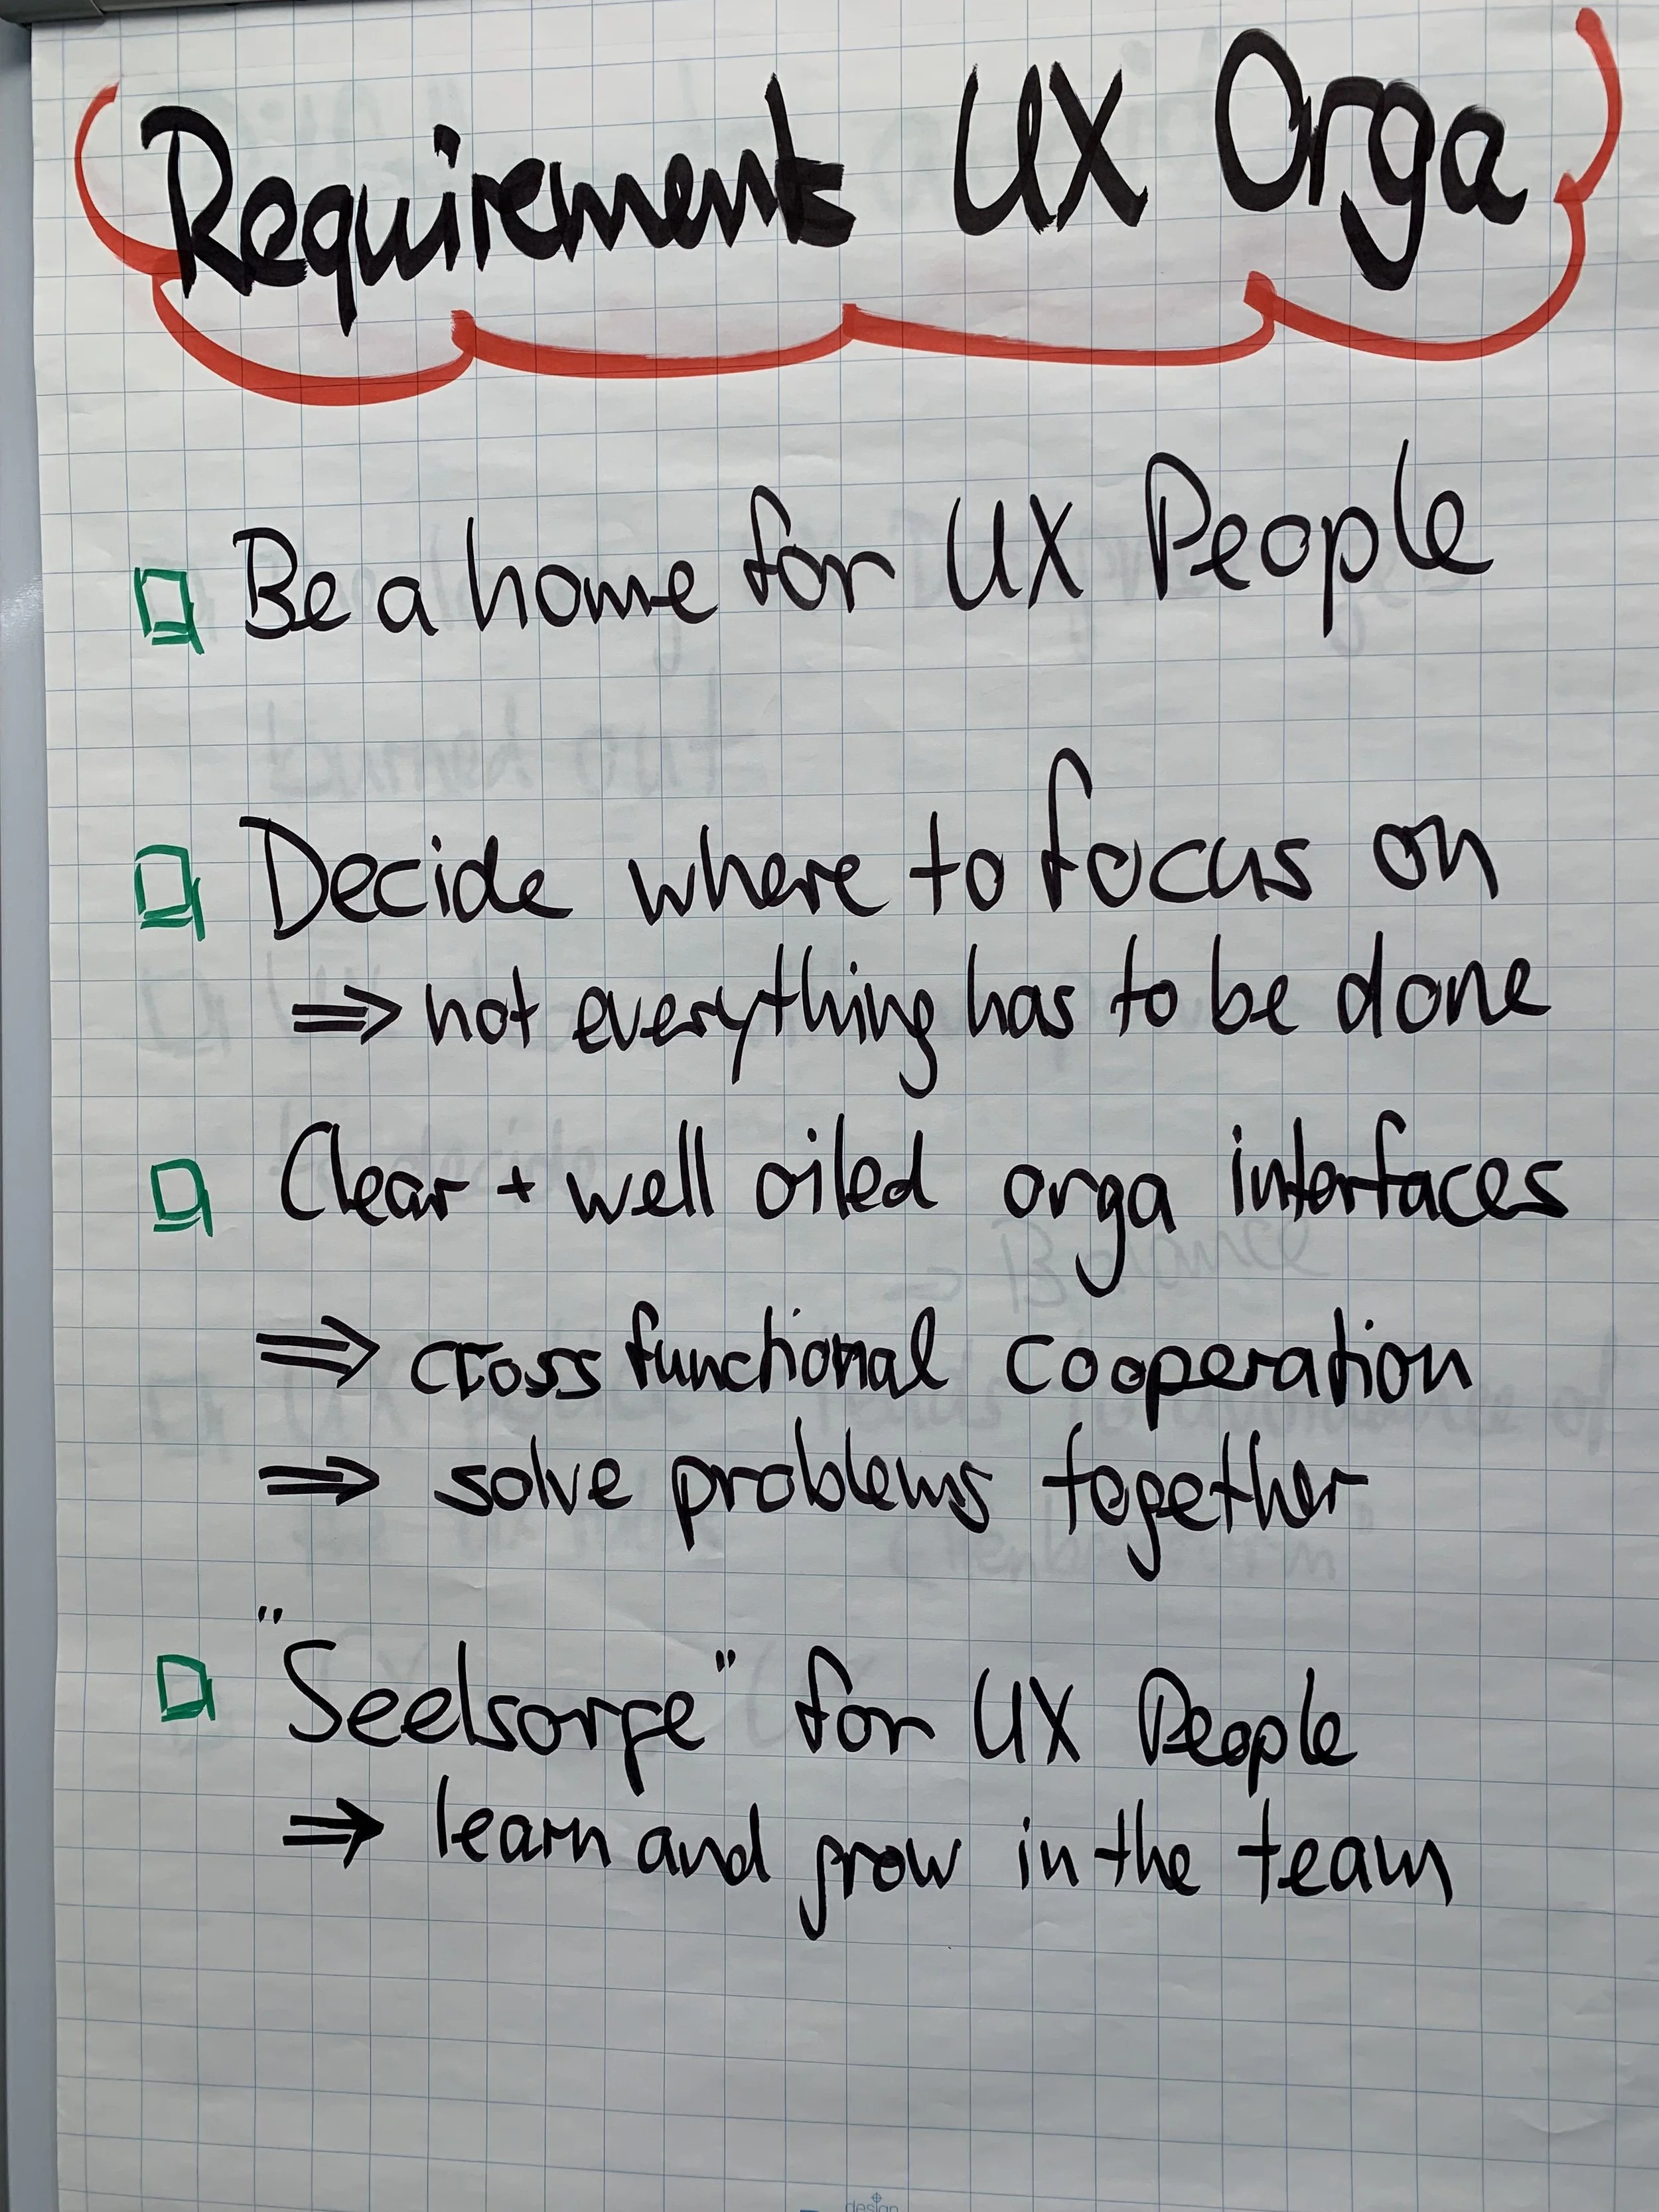 Requirements UX Orga
Be a home for UX People
Decide where to focus on
⇒ not everything has to be done
Clear + well oiled orga interfaces
⇒ cross functional cooperation
⇒ solve problems together
"Seelsorge" for UX People
⇒ learn and grow in the team
design